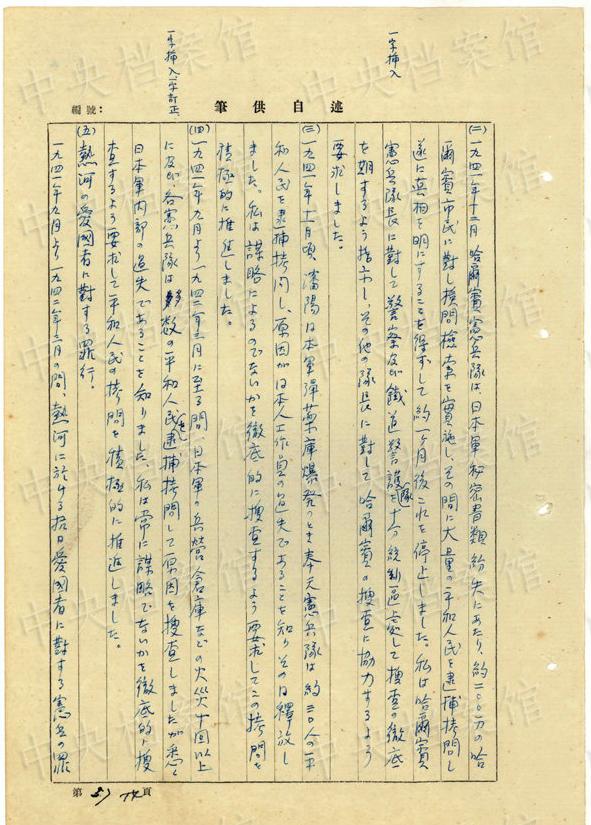 一字挿入
一字挿入一字訂正
編號：
筆供自述
(二) 一九四一年十二月 哈爾賓憲兵隊は、日本軍秘密書類紛失にあたり、約二〇〇万の哈
爾賓市民に対し撿問撿索を實施し、その間に大量の平和人民を逮捕拷問し
遂に真相を明にすることを得ずして約一ケ月後これを停止しました。私は哈爾賓
憲兵隊長に對して警察及鉄道警護隊を十分統制區處して捜査の徹底
を期するよう指示し、その他の隊長に對して哈爾賓の捜査に協力するよう
要求しました。
(三) 一九四一年十一月頃 瀋陽日本軍彈藥庫爆発のとき奉天憲兵隊は約三〇人の平
和人民を逮捕拷問し、原因が日本人工作員の過失であることを知りその后釋放し
ました。私は謀略によるのでないかを徹底的に捜査するよう要求してこの拷問を
積極的に推進しました。
(四) 一九四一年九月より一九四二年三月に至る間 日本軍の兵營倉庫などの火災十回以上
に及び各憲兵隊は多数の平和人民を逮捕拷問して原因を捜査しましたが悉く
日本軍内部の過失であることを知りました、私は常に謀略でないかを徹底的に捜
査するよう要求して平和人民の拷問を積極的に推進しました。
(五) 熱河の愛國者に對する罪行。
一九四一年九月より一九四二年三月の間、熱河に於ける抗日愛國者に對する憲兵の罪
第 頁
中央档案馆